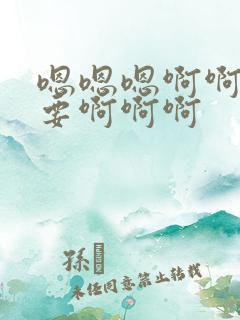 嗯嗯嗯啊啊
要啊啊啊
孫
未经同意禁止转载